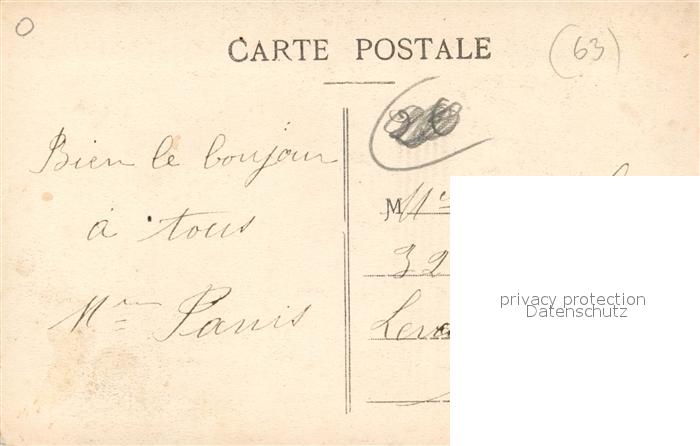 O
CARTE POSTALE
(63)
Bien le bonjour
à tous
Mme Panis
M Mlle
32
Leva
privacy protection
Datenschutz